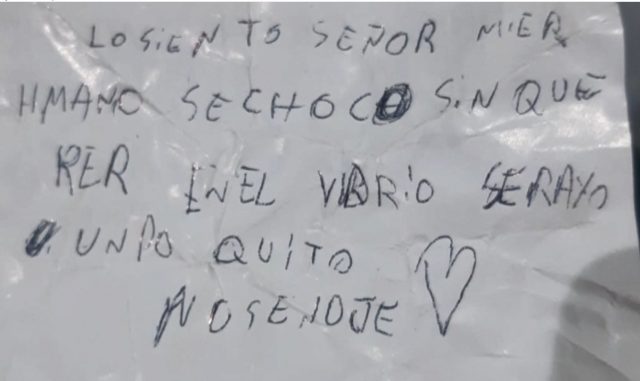 LO SiEN TO SEÑOR MiER
HMANO SECHOCO SiN QUE
RER ENEL VIDRiO SERAYO
UNPO QUiTO
NOSENOJE